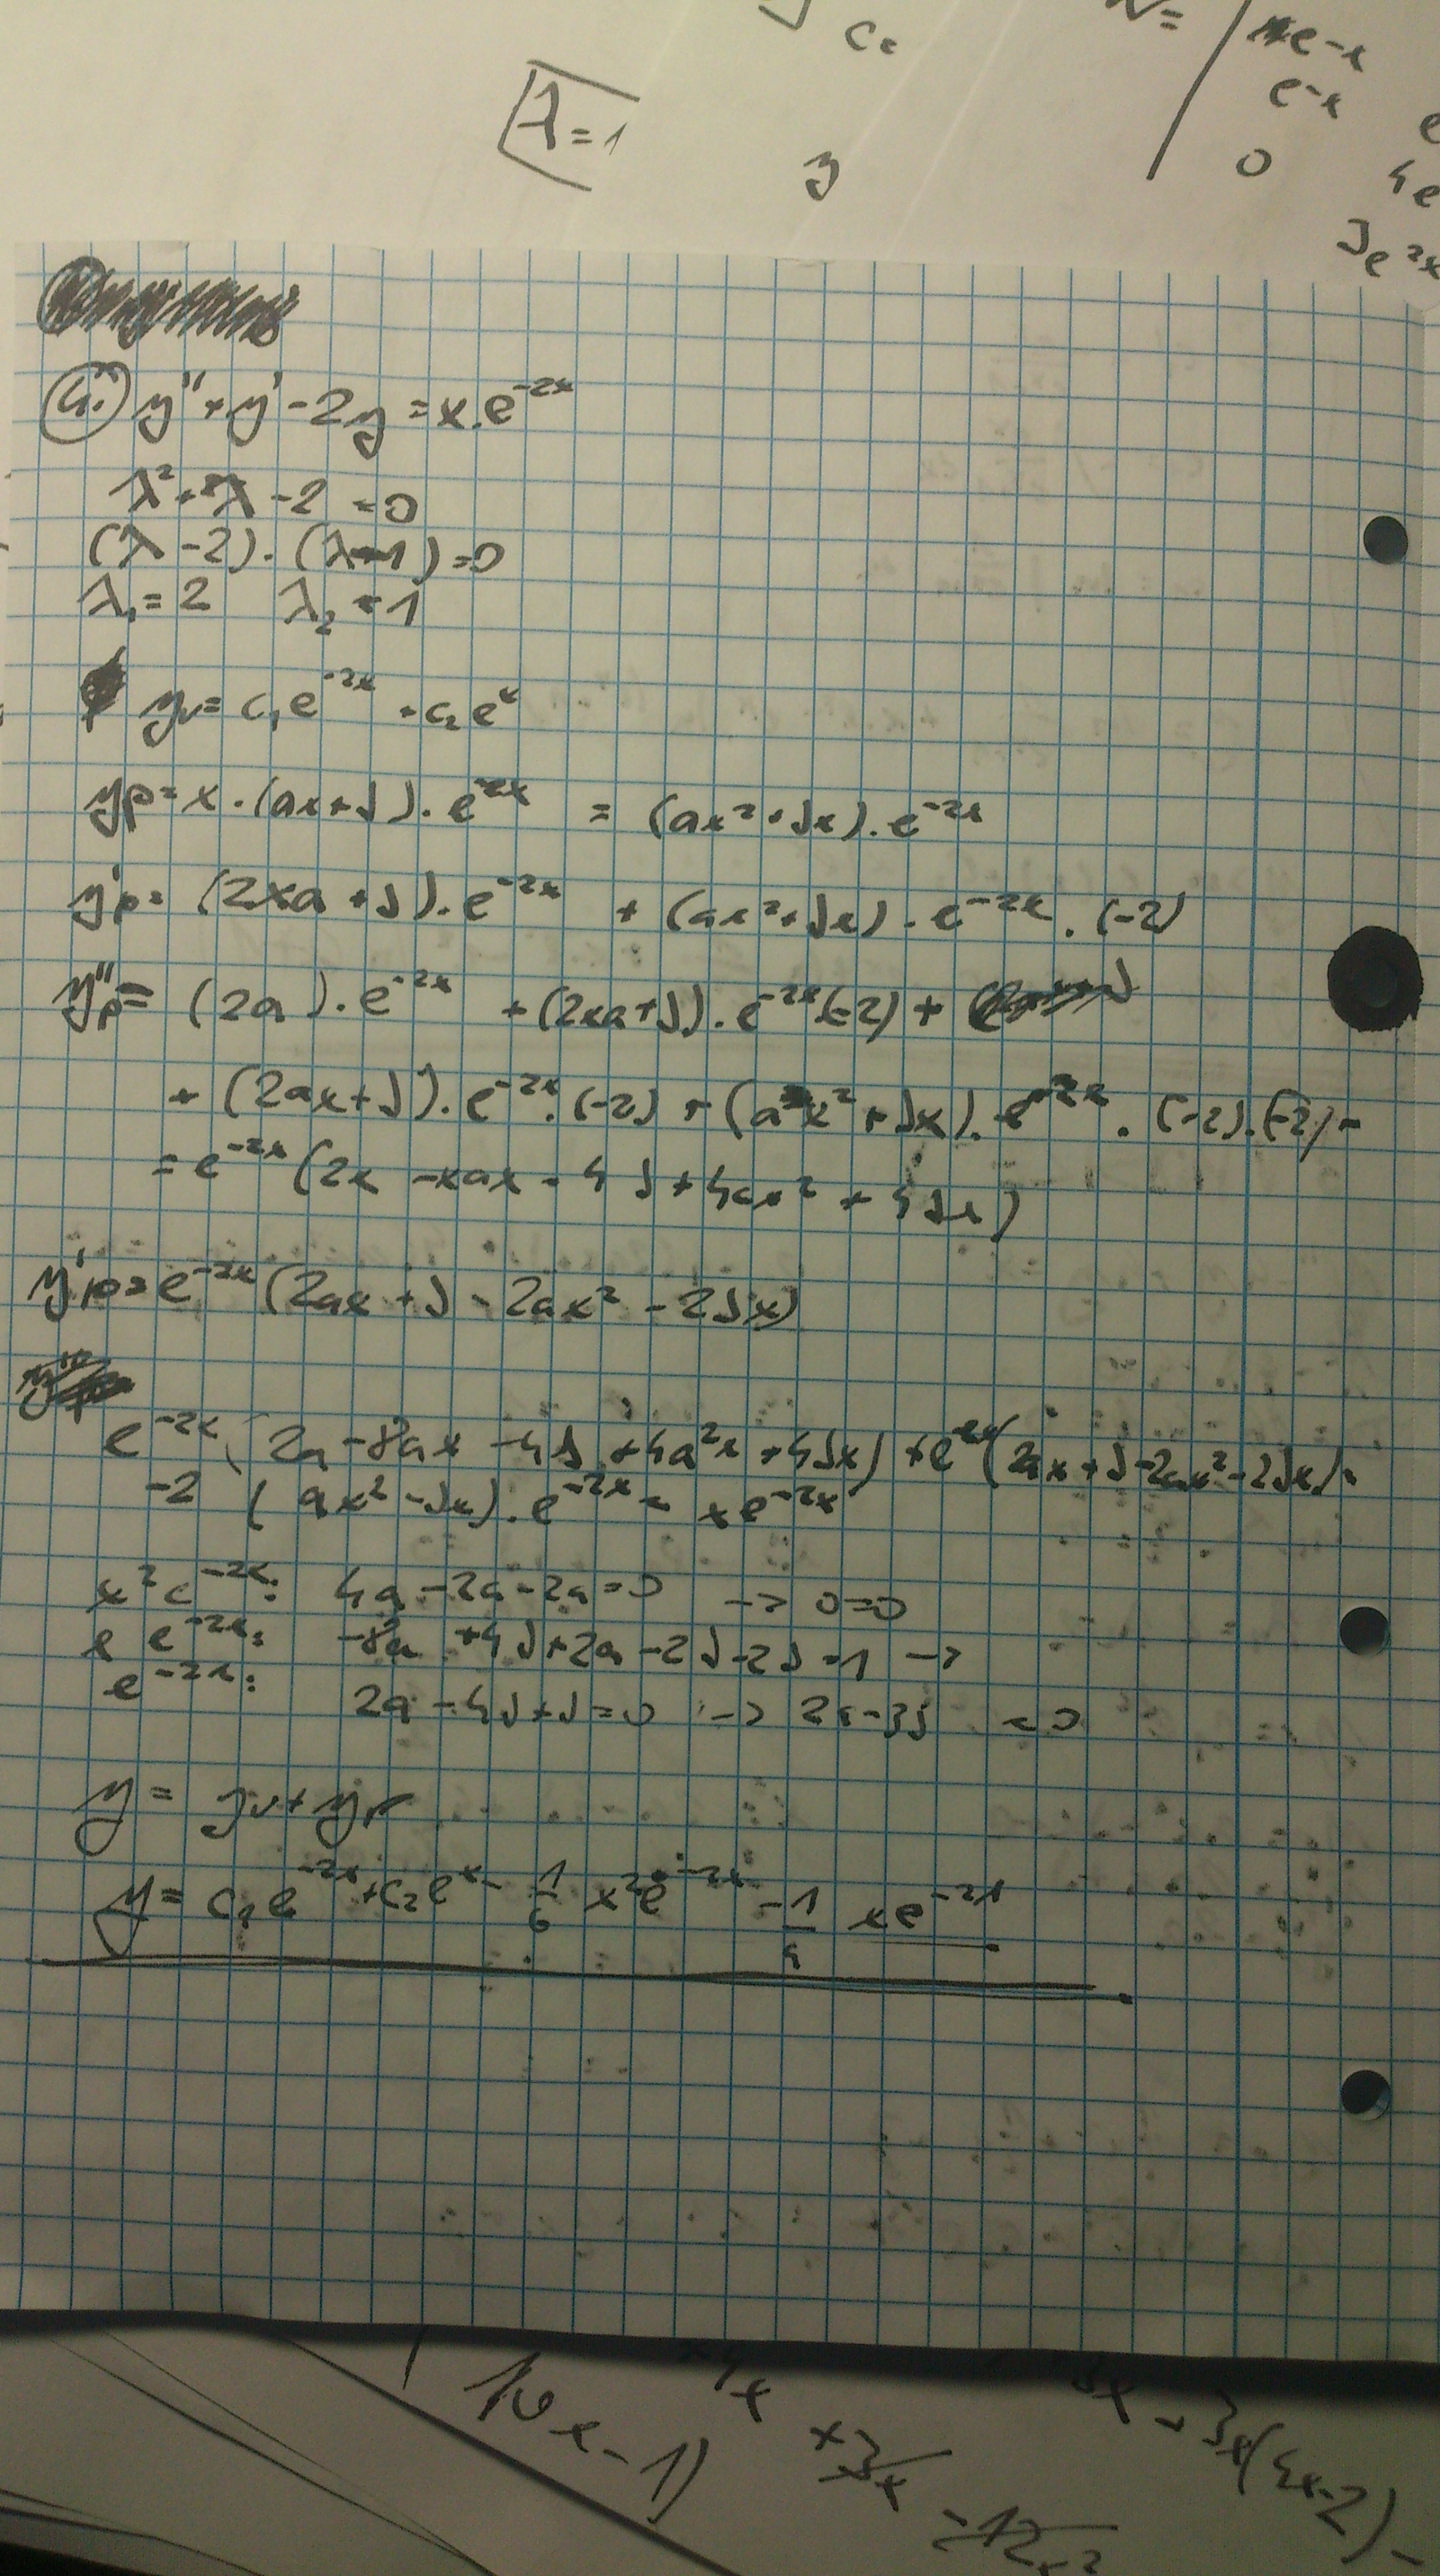 4.) y'' + y' - 2y = x.e^-2x
λ² + λ - 2 = 0
(λ - 2).(λ+1) = 0
λ₁ = 2 λ₂ = 1
yv = c₁e^-2x + c₂e^x
yp = x.(ax+b).e^-2x = (ax²+bx).e^-2x
y'p = (2xa+b).e^-2x + (ax²+bx).e^-2x.(-2)
y''p = (2a).e^-2x + (2xa+b).e^-2x(-2) +
+ (2ax+b).e^-2x.(-2) + (ax²+bx).e^-2x.(-2).(-2) =
= e^-2x (2x - xax - 4b + 4ax² + 4bx)
y'p = e^-2x (2ax + b - 2ax² - 2bx)
e^-2x (2a - 8ax - 4b + 4a²x + 4bx) + e^-2x (2ax + b - 2ax² - 2bx) -
-2 (ax² - bx).e^-2x = xe^-2x
x²e^-2x: 4a - 2a - 2a = 0 -> 0=0
xe^-2x: -8a + 4b + 2a - 2b - 2b = 1 ->
e^-2x: 2a - 4b + b = 0 -> 2a - 3b = 0
y = yv + yp
y = c₁e^-2x + c₂e^x - 1/6 x²e^-2x - 1/9 xe^-2x
λ = 1